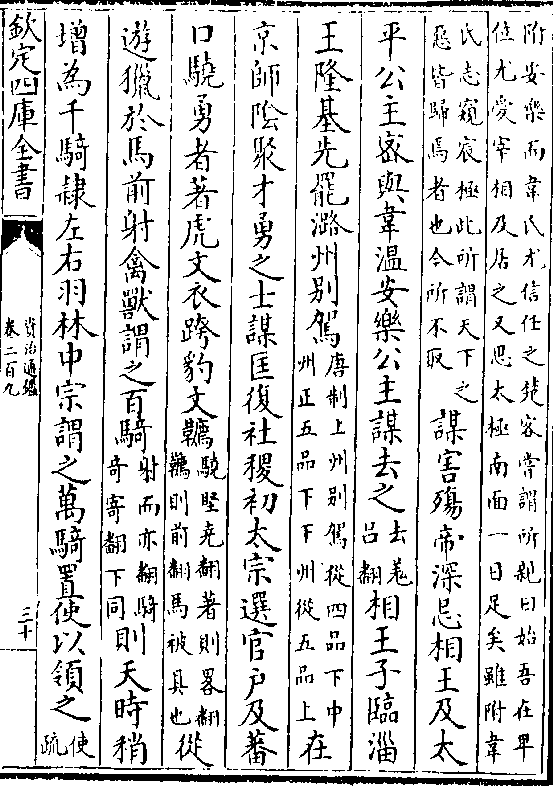 附安樂而韋氏尤信任之楚客嘗謂所親曰始吾在卑
位尤愛宰相及居之又思太極南面一日足矣雖附韋
氏志窺宸極此所謂天下之
惡皆歸焉者也今所不取
謀害殤帝深忌相王及太
平公主密與韋溫安樂公主謀去之
去羗
呂翻
相王子臨淄
王隆基先罷潞州別駕
唐制上州別駕從四品下中
州正五品下下州從五品上
在
京師陰聚才勇之士謀匡復社稷初太宗選官戶及蕃
口驍勇者著虎文衣跨豹文韉
驍堅堯翻著則畧翻
韉則前翻馬被具也
從
遊獵於馬前射禽獸謂之百騎
射而亦翻騎
奇寄翻下同
則天時稍
增為千騎隸左右羽林中宗謂之萬騎置使以領之
使
疏
欽定四庫全書
資治通鑑
卷二百九
三十